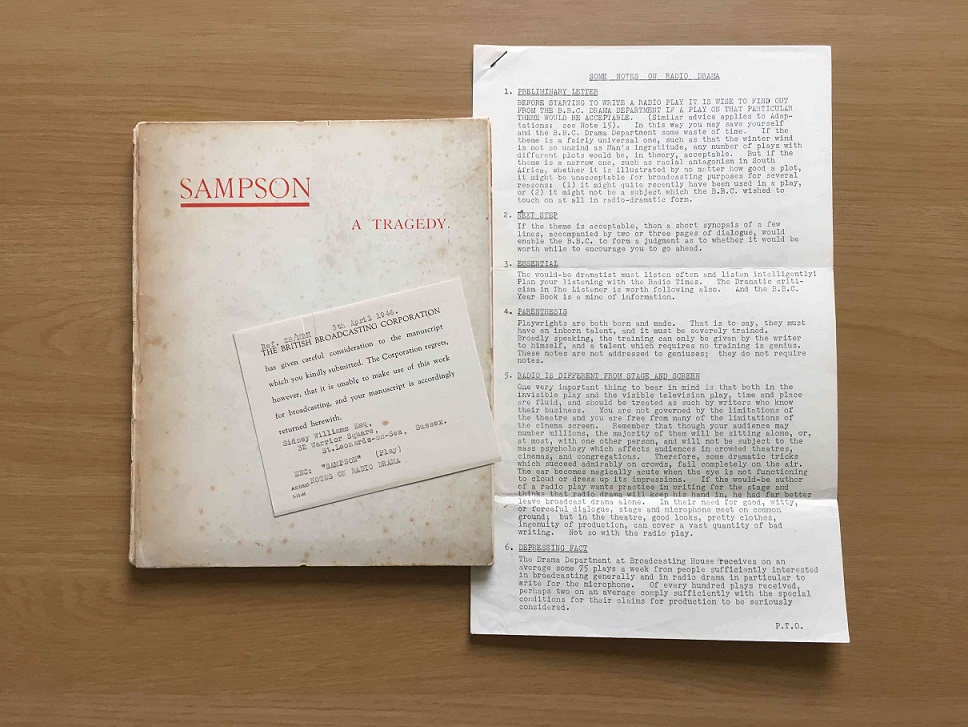 SAMPSON
A TRAGEDY.
Ref. 5th April 1946.
THE BRITISH BROADCASTING CORPORATION
has given careful consideration to the manuscript
which you kindly submitted. The Corporation regrets,
however, that it is unable to make use of this work
for broadcasting, and your manuscript is accordingly
returned herewith.
Sidney Williams Esq,
32 Warrior Square,
St.Leonards-on-Sea, Sussex.
ENC: "SAMPSON" (Play)
NOTES ON RADIO DRAMA
SOME NOTES ON RADIO DRAMA
1. PRELIMINARY LETTER
BEFORE STARTING TO WRITE A RADIO PLAY IT IS WISE TO FIND OUT
FROM THE B.B.C. DRAMA DEPARTMENT IF A PLAY ON THAT PARTICULAR
THEME WOULD BE ACCEPTABLE. (Similar advice applies to Adap-
tations: see Note 15). In this way you may save yourself
and the B.B.C. Drama Department some waste of time. If the
theme is a fairly universal one, such as that the winter wind
is not so unkind as Man's ingratitude, any number of plays with
different plots would be, in theory, acceptable. But if the
theme is a narrow one, such as racial antagonism in South
Africa, whether it is illustrated by no matter how good a plot,
it might be unacceptable for broadcasting purposes for several
reasons: (1) it might quite recently have been used in a play,
or (2) it might not be a subject which the B.B.C. wished to
touch on at all in radio-dramatic form.
2. NEXT STEP
If the theme is acceptable, then a short synopsis of a few
lines, accompanied by two or three pages of dialogue, would
enable the B.B.C. to form a judgment as to whether it would be
worth while to encourage you to go ahead.
3. ESSENTIAL
The would-be dramatist must listen often and listen intelligently!
Plan your listening with the Radio Times. The Dramatic criti-
cism in The Listener is worth following also. And the B.B.C.
Year Book is a mine of information.
4. PARENTHESIS
Playwrights are both born and made. That is to say, they must
have an inborn talent, and it must be severely trained.
Broadly speaking, the training can only be given by the writer
to himself, and a talent which requires no training is genius.
These notes are not addressed to geniuses; they do not require
notes.
5. RADIO IS DIFFERENT FROM STAGE AND SCREEN
One very important thing to bear in mind is that both in the
invisible play and the visible television play, time and place
are fluid, and should be treated as such by writers who know
their business. You are not governed by the limitations of
the theatre and you are free from many of the limitations of
the cinema screen. Remember that though your audience may
number millions, the majority of them will be sitting alone, or,
at most, with one other person, and will not be subject to the
mass psychology which affects audiences in crowded theatres,
cinemas, and congregations. Therefore, some dramatic tricks
which succeed admirably on crowds, fail completely on the air.
The ear becomes magically acute when the eye is not functioning
to cloud or dress up its impressions. If the would-be author
of a radio play wants practise in writing for the stage and
thinks that radio drama will keep his hand in, he had far better
leave broadcast drama alone. In their need for good, witty,
or forceful dialogue, stage and microphone meet on common
ground; but in the theatre, good looks, pretty clothes,
ingenuity of production, can cover a vast quantity of bad
writing. Not so with the radio play.
6. DEPRESSING FACT
The Drama Department at Broadcasting House receives on an
average some 75 plays a week from people sufficiently interested
in broadcasting generally and in radio drama in particular to
write for the microphone. Of every hundred plays received,
perhaps two on an average comply sufficiently with the special
conditions for their claims for production to be seriously
considered.
P.T.O.